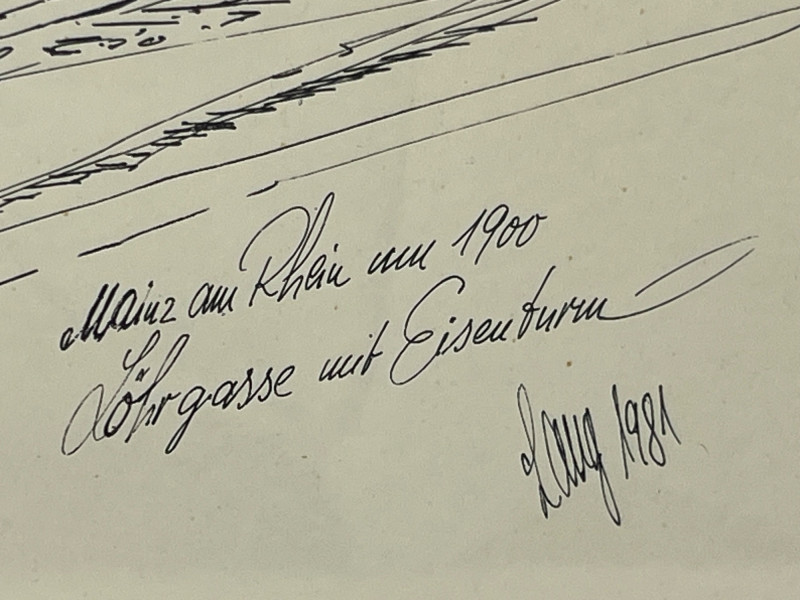 Mainz am Rhein um 1900
Löhrgasse mit Eisenturm
Lang 1981